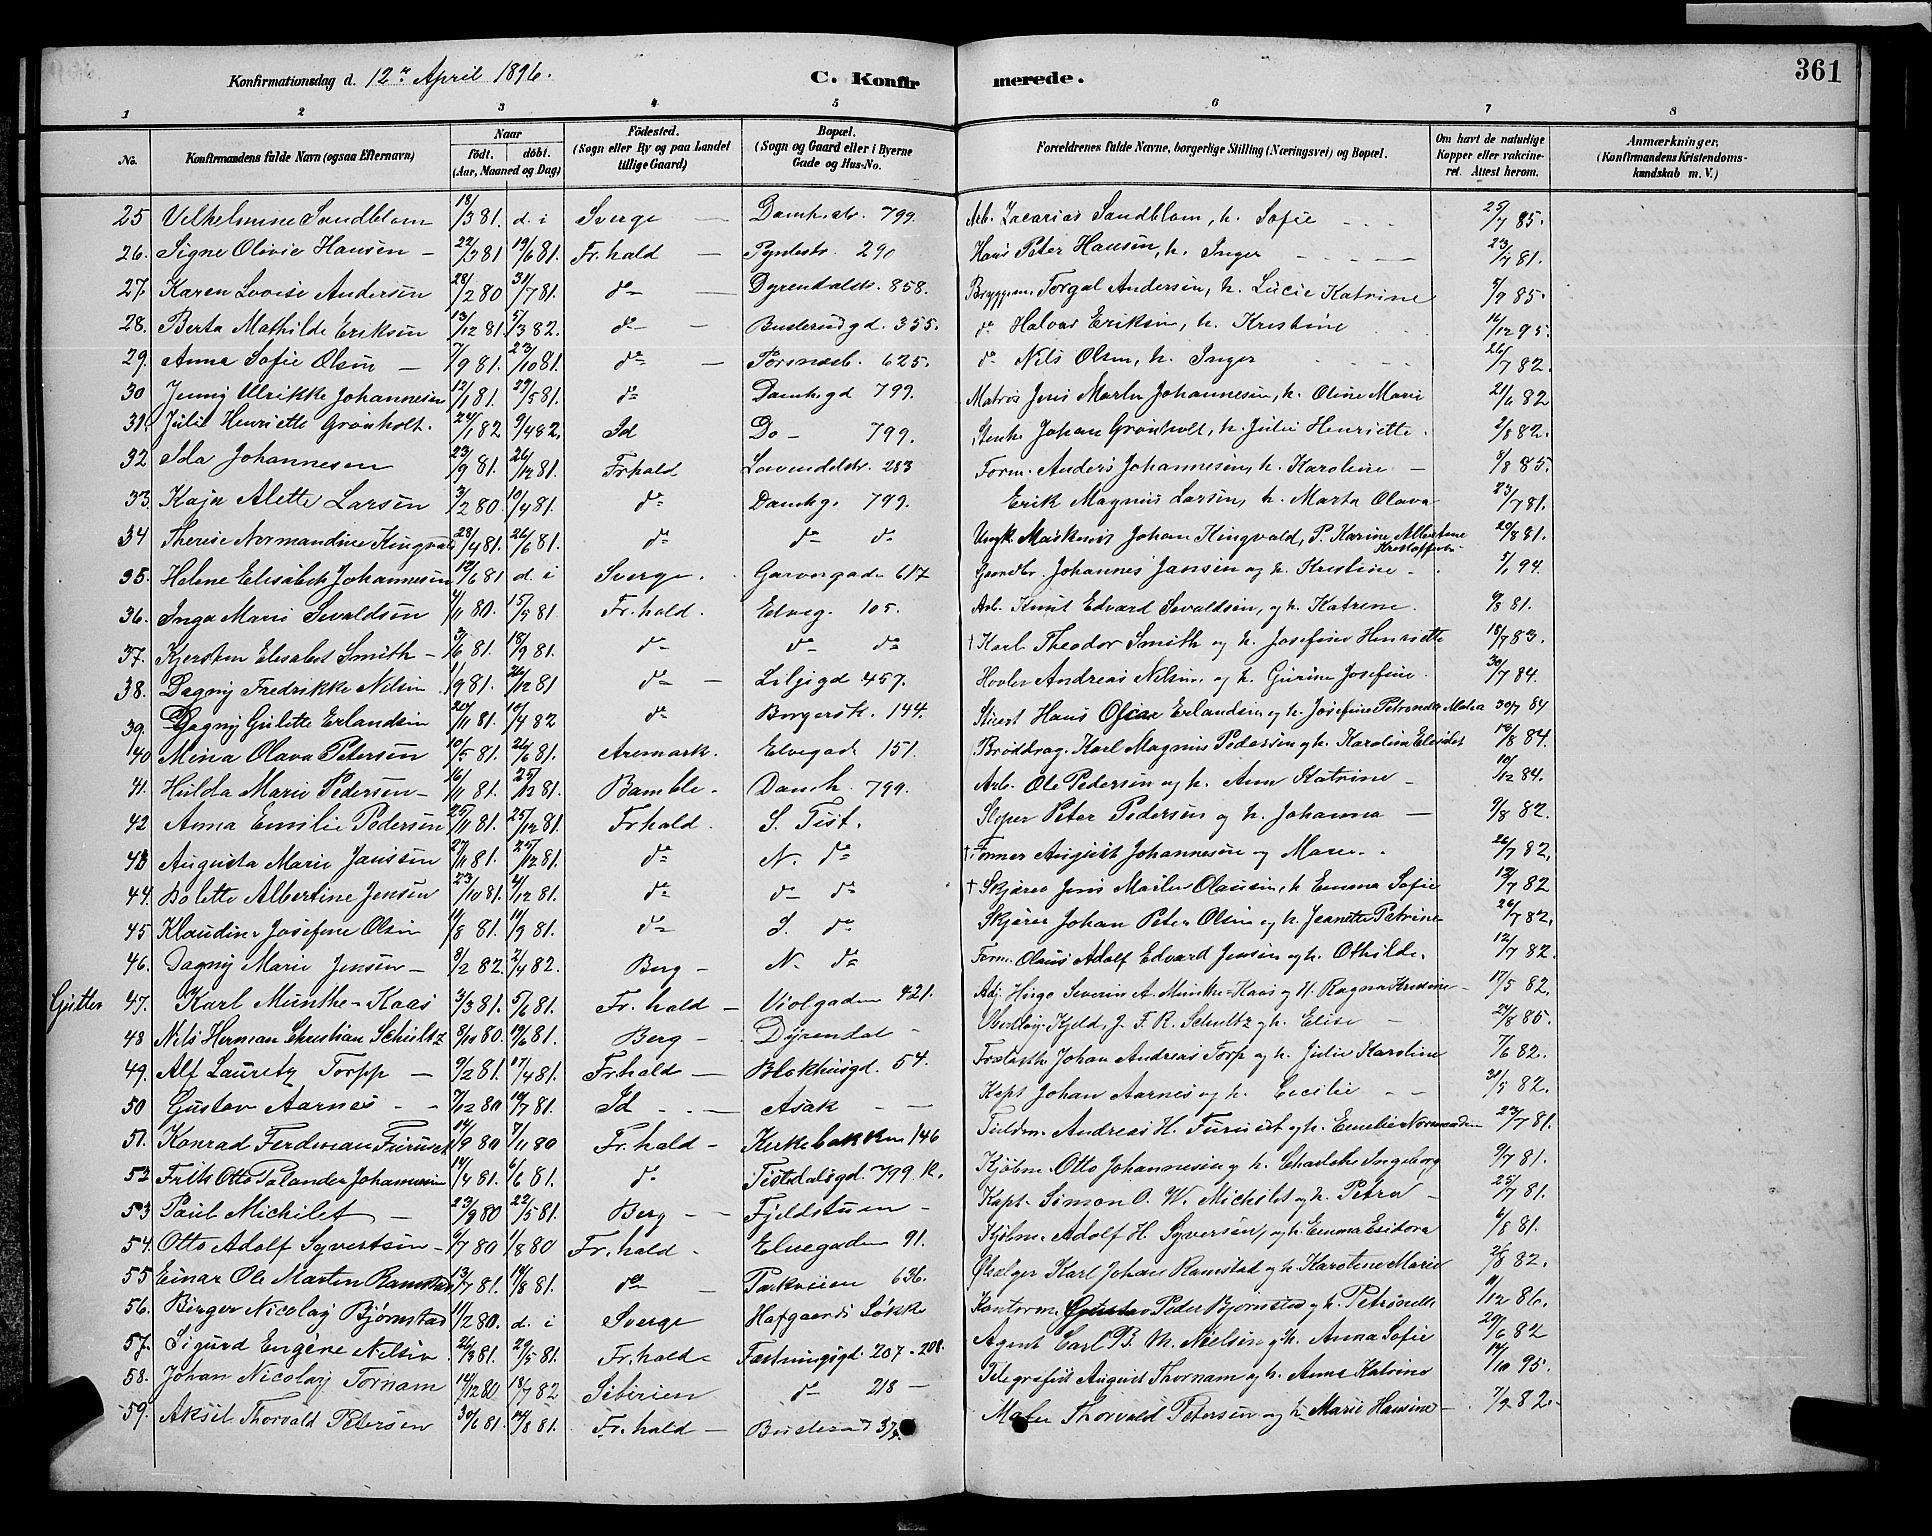 361
Konfirmationsdag d. 12te April 1896. C. Konfirmerede.
1 2 3 4 5 6 7 8
No. Konfirmandens fulde Navn (ogsaa Efternavn) Naar Födt. döbt. (Aar, Maaned og Dag) Födested. (Sogn eller By og paa Landet tillige Gaard) Bopæl. (Sogn og Gaard eller i Byerne Gade og Hus-No. Forældrenes fulde Navne, borgerlige Stilling (Næringsvei) og Bopæl. Om havt de naturlige Kopper eller vakcineret. Attest herom. Anmærkninger. (Konfirmandens Kristendomskundskab m. V.)
25 Vilhelmine Sandblom 18/3 81. d. i Sverge — Damh.str. 799. Arb. Zacarias Sandblom, h. Sofie 25/7 85.
26. Signe Olivie Hansen — 22/3 81 19/6 81. Fr.hald — Pyntestr. 290 Hans Peter Hansen, h. Inger 23/7 81.
27. Karen Lovise Andersen 28/2 80 31/7 81. do — Dyrendalstr. 858. Bryggem. Torgal Andersen, h. Lucie Katrine 9/9 85.
28. Berta Mathilde Eriksen 13/12 81. 5/3 82. do — Busterudgd. 355. do Halvor Eriksen, h. Kristine 16/12 95.
29. Anna Sofie Olsen — 7/9 81. 23/10 81. do — Torsnæsb. 625. do Nils Olsen, h. Inger 26/7 82.
30 Jenny Ulrikke Johannesen 12/1 81. 29/5 81. do Damh.gd 799. Matros Jens Martin Johannesen, h. Oline Marie 21/6 82
31. Julie Henriette Grönholt. 24/1 82 9/4 82. Id Do — 799. Stenh. Johan Grönholt, h. Julie Henriette. 2/8 82.
32 Ida Johannesen 23/9 81. 26/12 81. Fr.hald Lavendelstr. 283 Form. Anders Johannesen, h. Karoline — 3/8 85.
33. Kaja Alette Larsen 3/2 80 10/4 81. do Damhg. 799. Erik Magnus Larsen, h. Marta Olava 23/7 81.
34 Therese Normandine Kingvald 28/4 81. 26/6 81. do do do Ungk. Maskinist Johan Kingvald, P. Karine Albertine Kristoffersen 20/8 81.
35. Helene Elisabeth Johannesen 12/6 81 d. i Sverge. Garvergaden 617 Gaardbr. Johannes Jansen og h. Kristine 5/1 94.
36. Inga Marie Sivaldsen 4/11 80. 15/5 81. Fr.hald. Elveg. 105. Arb. Knut Edvard Sevaldsen, og h. Katrine. 9/8 81.
37. Kjersten Elisabet Smith — 3/6 81. 18/9 81. do do do † Karl Theodor Smith og h. Josefine Henriette 18/7 83.
38. Dagny Fredrikke Nilsen 1/9 81. 26/12 81 do — Liljegd 457. Hovler Andreas Nilsen og h. Gurine Josefine. 30/7 84.
39. Dagny Gulette Erlandsen 20/11 81. 10/4 82 do Borgersk. 144. Stuert Hans Oscar Erlandsen og h. Josefine Petronelle Malea 30/7 84
40 Mina Olava Petersen 10/5 81. 26/6 81. Aremark. Elvegad 151. Bröddrag. Karl Magnus Pedersen og h. Karolina Elisabet 19/8 84.
41. Hulda Marie Pedersen — 16/11 81. 25/12 81. Bamble. Damh. 799. Arb. Ole Pedersen og h. Ann Katrine — 10/12 84.
42 Anna Emilie Pedersen 25/11 81. 25/12 81. Fr.hald. S. Tist. Sliper Peter Pedersen og h. Johanna — 9/8 82.
43 Augusta Marie Janssen 27/11 81. 25/12 81. do N. do † Former August Johannesen og Maren. 26/7 82.
44. Bolette Albertine Jensen 23/10 81. 4/12 81. do do do † Skjærer Jens Martin Olausen, h Emma Sofie 12/7 82
45 Klaudine Josefine Olsen 19/8 81. 11/9 81. do S. do Skjærer Johan Peter Olsen og h. Jeanette Petrine 26/7 82.
46. Dagny Marie Jensen — 8/2 82. 2/4 82. Berg — N. do Form. Olaus Adolf Edvard Jensen og h. Othilde. 12/7 82.
Gutter 47. Karl Munthe-Kaas 3/3 81. 5/6 81. Fr.hald — Violgaden 421. Adj. Hugo Severin A. Munthe-Kaas og H. Ragna Kristine 17/5 82.
48 Nils Herman Christian Schultz 8/10 80. 19/6 81. Berg — Dyrendal — Oberstløy. Kjeld J. F. R. Schultz og h. Elise — 24/8 85.
49. Alf Lauretz Torpp — 9/2 81. 17/4 81. Fr.hald — Blokhusgd. 54. Johan Andreas Torp og h. Julie Karoline 7/6 82.
50 Gustav Aarnes 7/12 80 10/7 81. Id — Asak — Kapt Johan Aarnes og h. Cecilie — 31/5 82.
51. Konrad Ferdinan Furuset 14/9 80 7/11 80 Fr.hald — Kirkebakken 146 Toldm. Andreas H. Furuset og h. Emelie Normanden 23/7 81.
52 Frits Otto Palander Johannesen 14/4 81. 6/6 81. do Tistedalsgd. 799. K. Kjöbm. Otto Johannesen og h. Charlotte Ingeborg 9/7 81.
53 Paul Michelet — 23/9 80 22/5 81. Berg — Fjeldstuen — Kapt. Simon O. W. Michelet og h. Petra — 25/7 81.
54. Otto Adolf Syvertsen — 6/7 80 1/8 80 Fr.hald. Elvegaden 91. Kjöbm. Adolf H. Syversen, og h. Emma Esidora 6/8 81.
55 Einar Ole Martin Ramstad 13/7 81. 14/8 81. do — Parkveien 636. Ølsælger Karl Johan Ramstad og h. Karoline Marie 25/8 82.
56. Birger Nicolay Bjørnstad 11/2 80. d. i Sverge Hofgaards Løkke Kontorm. Gustav Peder Bjørnstad og h. Petronelle 10/12 86.
57. Sigurd Eugène Nilsen 26/3 81. 29/5 81. Fr.hald — Fæstningsgd. 207-208. Agent Carl B. M. Nielsen og h. Anna Sofie 20/6 82
58. Johan Nicolay Tornam 14/12 80. 18/7 82 Sibirien do 218 — Telegrafist August Thornam og h. Anna Katrine 14/10 95.
59. Aksel Thorvald Petersen 30/6 81. 14/8 81. Fr.hald — Busterud Maler Thorvald Petersen og h Marie Hansine 7/9 82.